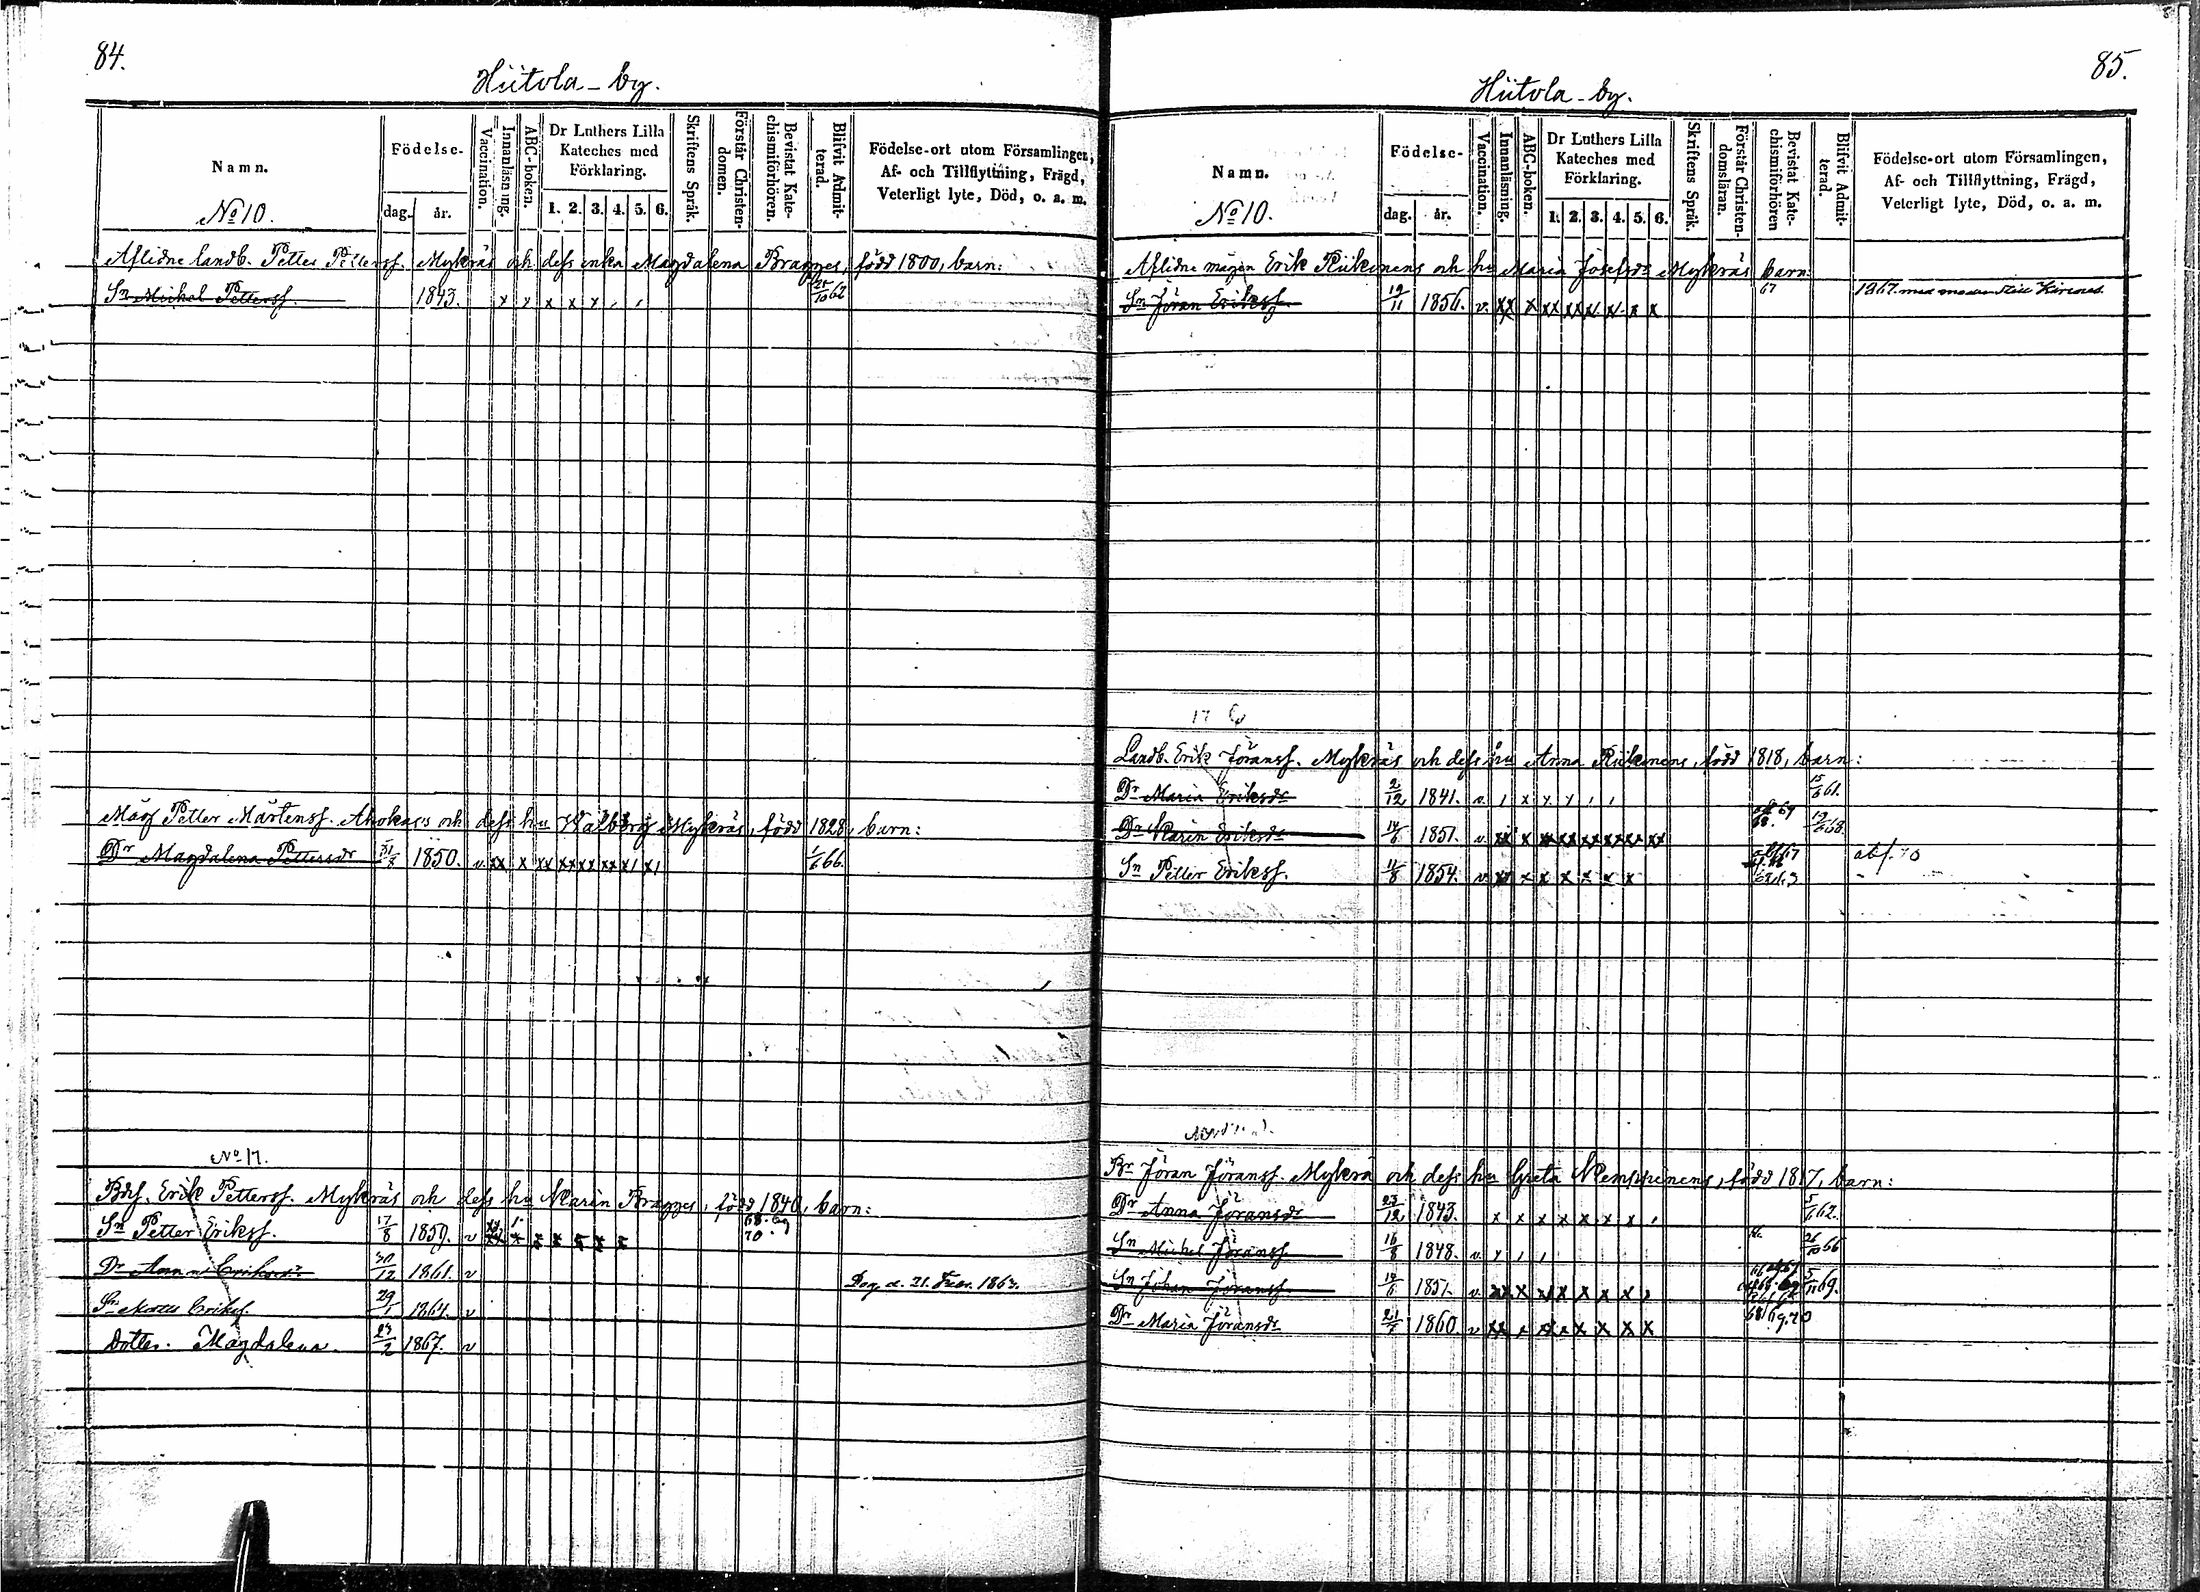 84.
Hiitola-by.
Namn.
Födelse-
dag. år.
Vaccination.
Innanläsning.
ABC-boken.
Dr Luthers Lilla
Kateches med
Förklaring.
1. 2. 3. 4. 5. 6.
Skriftens Språk.
Förstår Christen-
domen.
Bevistat Kate-
chismiförhören.
Blifvit Admit-
terad.
Födelse-ort utom Församlingen,
Af- och Tillflyttning, Frägd,
Veterligt lyte, Död, o. a. m.
No 10.
Aflidne landb. Petter Pettersf. Mykräs och dess enka Magdalena Bragges, född 1800, barn:
Sn Michel Pettersf. 1843. x x x x x , , 25/10 62
Måg Petter Mårtensf. Ahokas's och dess hu Walborg Mykräs, född 1828, barn:
Dr Magdalena Pettersdr 31/8 1850. v xx x xx xx xx xx x1 x1 1/6 66.
No 17.
Bdsf. Erik Pettersf. Mykräs och dess hu Karin Bragges, född 1840, barn:
Sn Petter Eriksf. 17/8 1859. v 68. 69 70.
Dr Anna Eriksdr 30/12 1861. v Dog d. 21. 1863.
Sn Eriksf. 29/1 1864. v
Dotter. Magdalena. 23/2 1867. v
85.
Hiitola-by.
Namn.
Födelse-
dag. år.
Vaccination.
Innanläsning.
ABC-boken.
Dr Luthers Lilla
Kateches med
Förklaring.
1. 2. 3. 4. 5. 6.
Skriftens Språk.
Förstår Christen-
domsläran.
Bevistat Kate-
chismiförhören
Blifvit Admit-
terad.
Födelse-ort utom Församlingen,
Af- och Tillflyttning, Frägd,
Veterligt lyte, Död, o. a. m.
No 10.
Aflidne mågen Erik Riikonens och hu Maria Josefsdr Mykräs barn:
Sn Jöran Eriksf. 19/11 1856. v. xx x xx xx x x x x 67 1867. med modren till
17
Landb. Erik Jöransf. Mykräs och dess hu Anna Riikonens, född 1818, barn:
Dr Maria Eriksdr 2/12 1841. v. , x x x , , 15/6 61.
Dr Karin Eriksdr 14/6 1851. v. xx x xx xx xx xx xx xx 68. 69 12/6 68.
Sn Petter Eriksf. 11/8 1854. v xx x x x x x x 67 abs. 70
Br Jöran Jöransf. Mykrä och dess hu Greta Kemppinens, född 1817, barn:
Dr Anna Jöransdr 23/12 1843. x x x x x x x , 5/6 62.
Sn Michel Jöransf. 16/8 1848. v. x , , 26/10 66
Sn Johan Jöransf. 14/6 1851. v. xx x x x x x x , 5/11 69.
Dr Maria Jöransdr 21/7 1860. v xx x xx x x x x 68. 69. 70